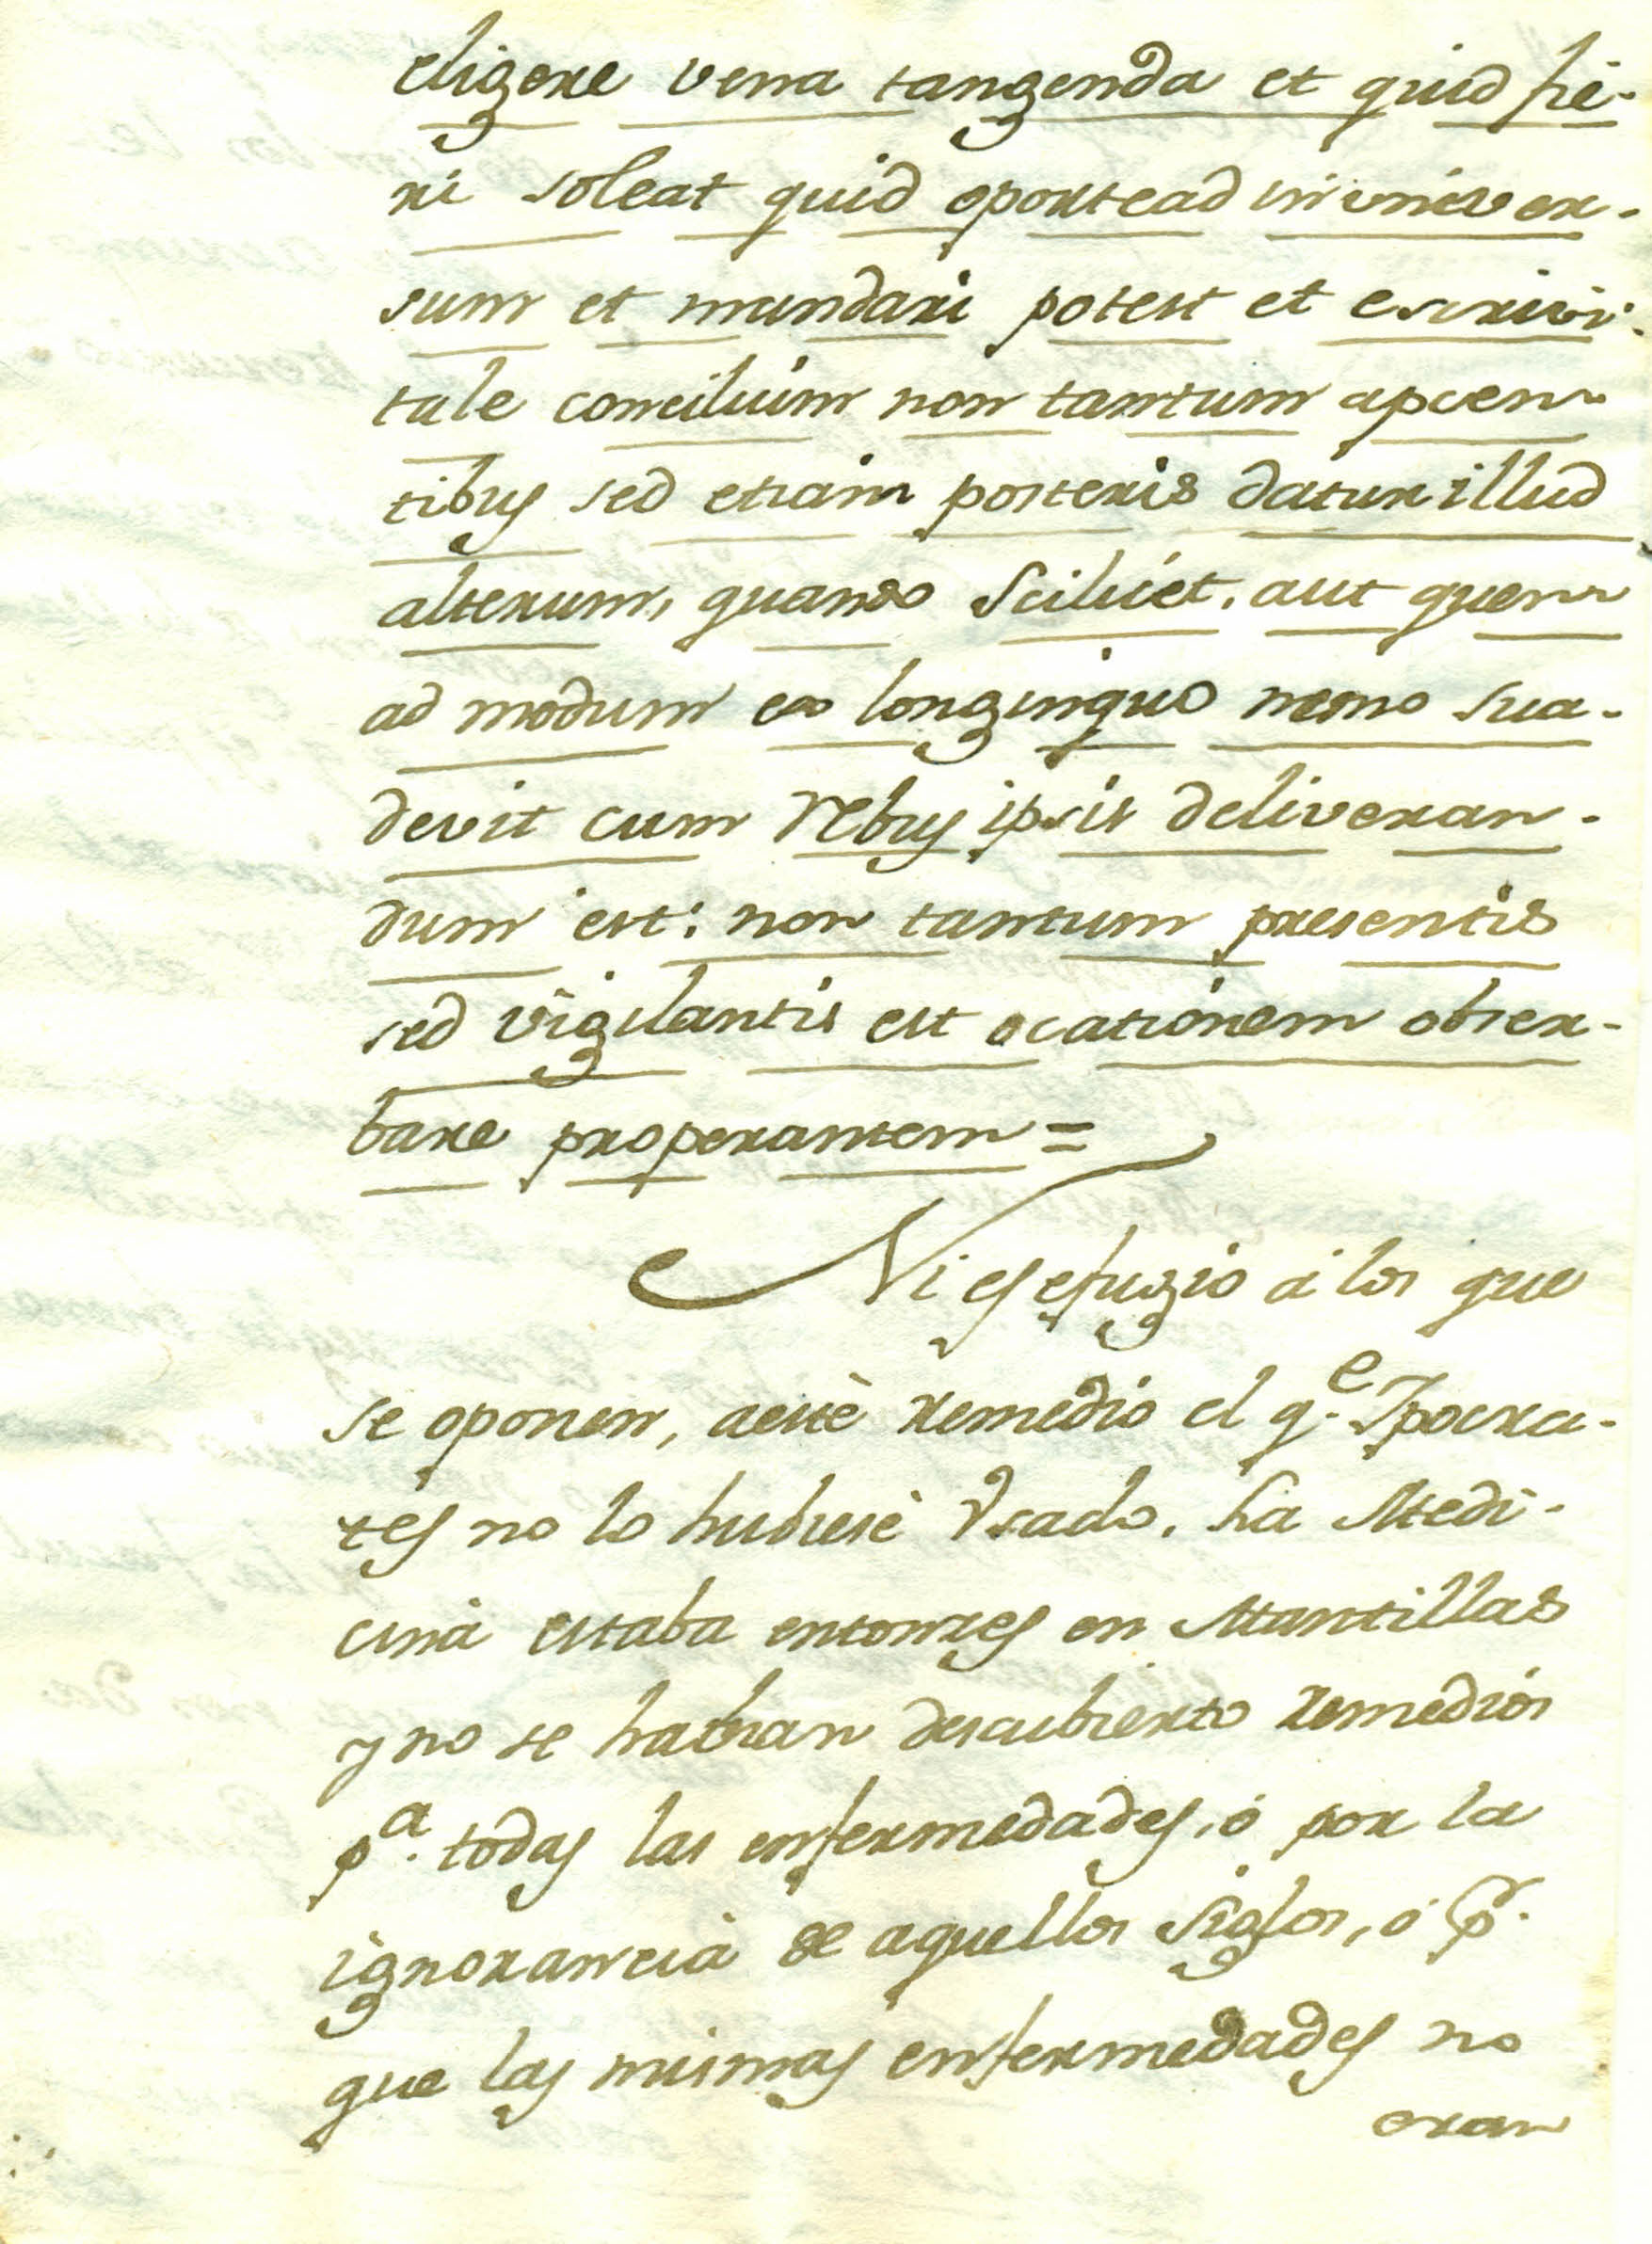 eligere vena tangenda et quid fie-
ri soleat quid oportead in univer-
sum et mandari potest et escrivi:
tale conciluim non tantum apcen
tibus sed etiam posteris datur illud
alterum, quando Sciliset, aut quen
ad modum ex longinquo nemo sua-
devit cum rebus ipsis deliveran-
dum est: non tantum presentis
sed vigilantis est ocationem obser-
bare properantem =
Ni es efugio á los que
se oponen, aeste remedio el q.e Ipocra-
tes no lo hubiese Usado. La Medi-
cina estaba entonzes en Mantillas
y no se habian descubierto remedios
p.a todas las enfermedades, ó por la
ignorancia de aquellos Siglos, ó p.r
que las mismas enfermedades no
eran